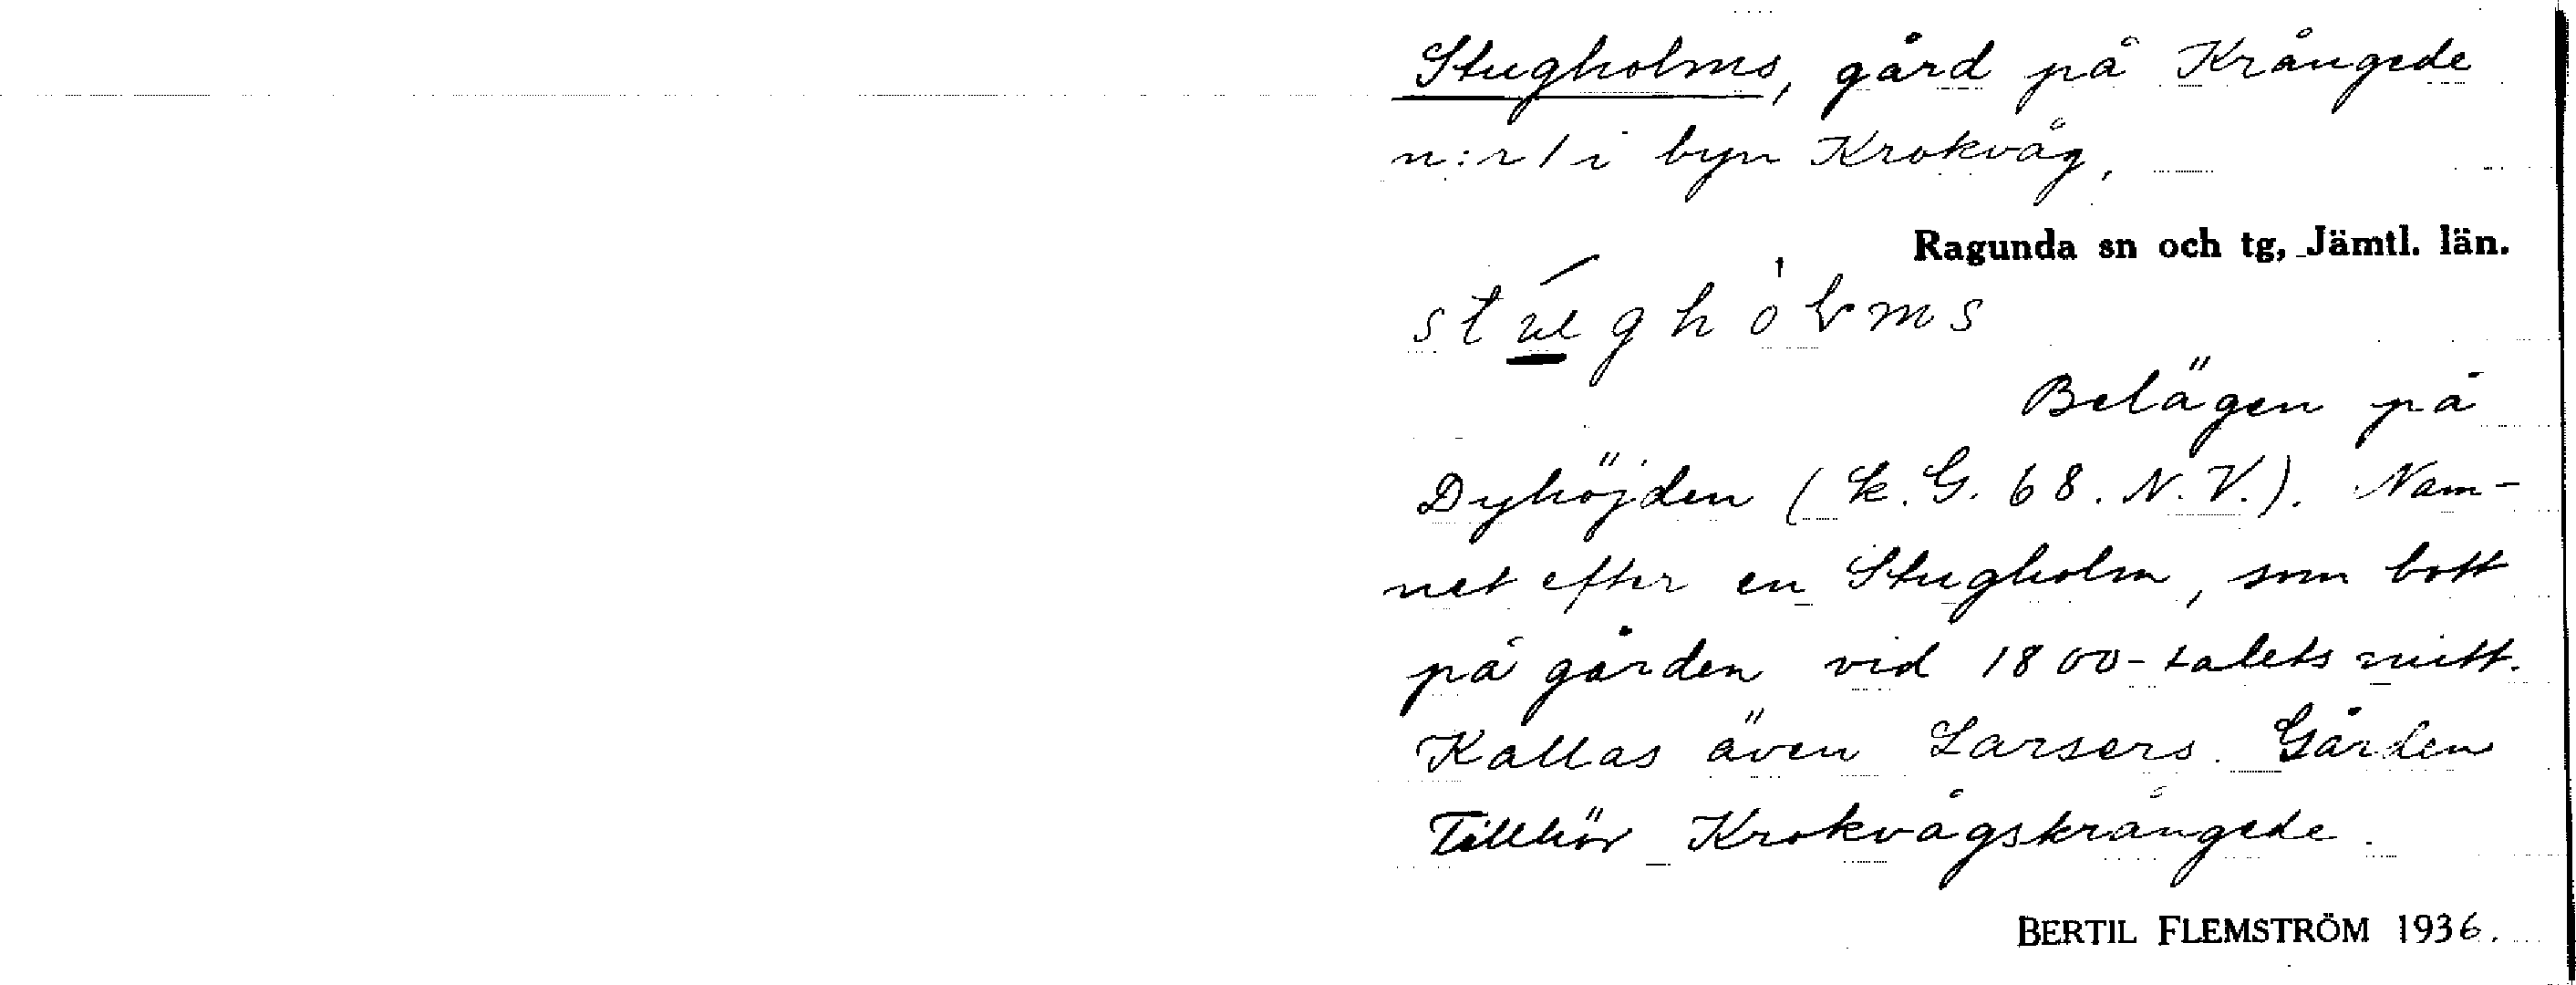 Stugholms, gård på Krångede
n:r 1 i byn Krokvåg,
Ragunda sn och tg, Jämtl. län.
Belägen på
Dyhöjden (k. G. 68. N. V.). Nam-
net efter en Stugholm, som bott
på gården vid 1800-talets mitt.
Kallas även Larsers. Gården
Tillhör Krokvågskrångede.
BERTIL FLEMSTRÖM 1936.